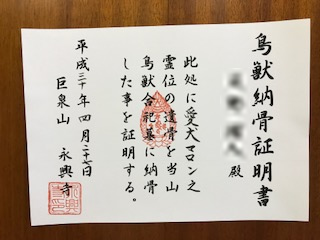 鳥獣納骨証明書
殿
此処に愛犬マロン之
霊位の遺骨を当山
鳥獣合祀墓に納骨
した事を証明する。
平成三十年四月二十七日
巨泉山 永興寺